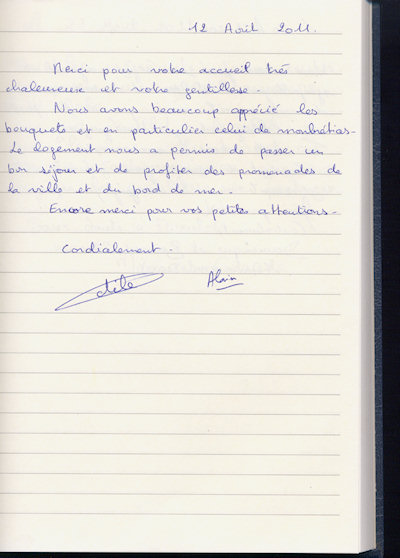 12 Avril 2011.
Merci pour votre accueil très
chaleureuse et votre gentillesse.
Nous avons beaucoup apprécié les
bouquets et en particulier celui de monbrétias.
Le logement nous a permis de passer un
bon séjour et de profiter des promenades de
la ville et du bord de mer.
Encore merci pour vos petites attentions.
Cordialement.
Odile Alain